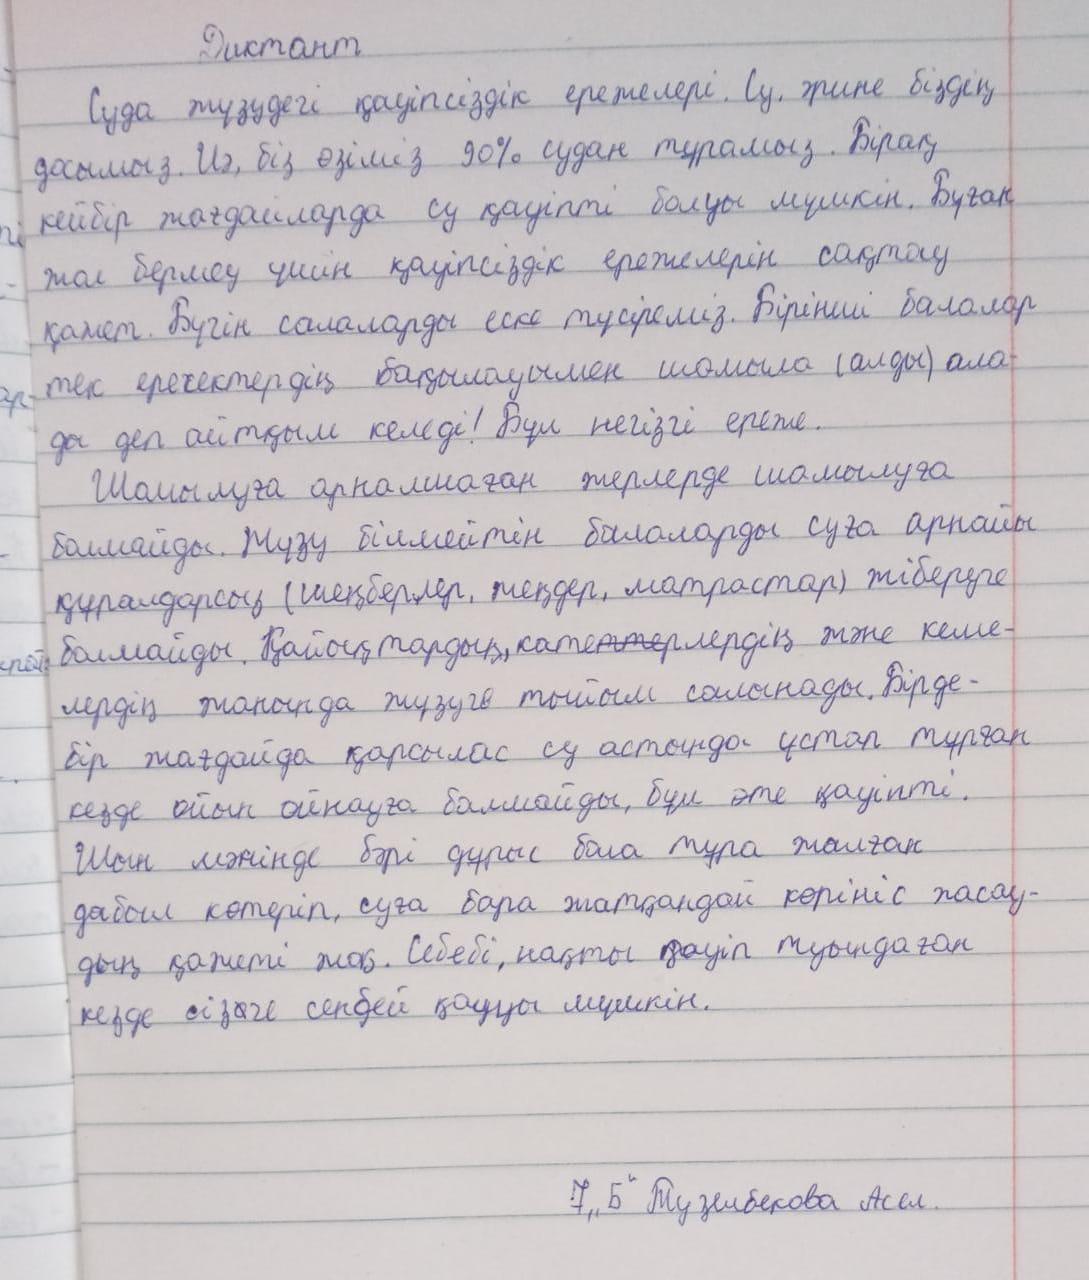 Диктант
Суда жүзудегі қауіпсіздік ережелері. Су, әрине біздің
досымыз. Иә, біз өзіміз 90% судан тұрамыз. Бірақ
кейбір жағдайларда су қауіпті болуы мүмкін. Бұған
жол бермеу үшін қауіпсіздік ережелерін сақтау
қажет. Бүгін солаларды еске түсіреміз. Бірінші балалар
тек ересектердің бақылауымен шомыла (алды) ала-
ды деп айтқым келеді! Бұл негізгі ереже.
Шомылуға арналмаған жерлерде шомылуға
болмайды. Жүзу білмейтін балаларды суға арнайы
құралдарсыз (шеңберлер, жеңдер, матрастар) жіберуге
болмайды. Қайықтардың, катерлердің және кеме-
лердің жанында жүзуге тыйым салынады. Бірде-
бір жағдайда қарсылас су астында ұстап тұрған
кезде ойын ойнауға болмайды, бұл өте қауіпті.
Шын мәнінде бәрі дұрыс бола тұра жалған
дабыл көтеріп, суға бара жатқандай көрініс жасау-
дың қажеті жоқ. Себебі, нақты қауіп туындаған
кезде сізге сенбей қалуы мүмкін.
7 „Б“ Тузелбекова Асел.